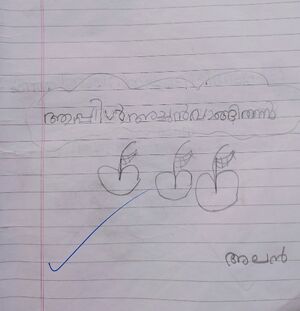 ആപ്പിൾ അച്ഛൻ വാങ്ങി തന്നു
അലൻ